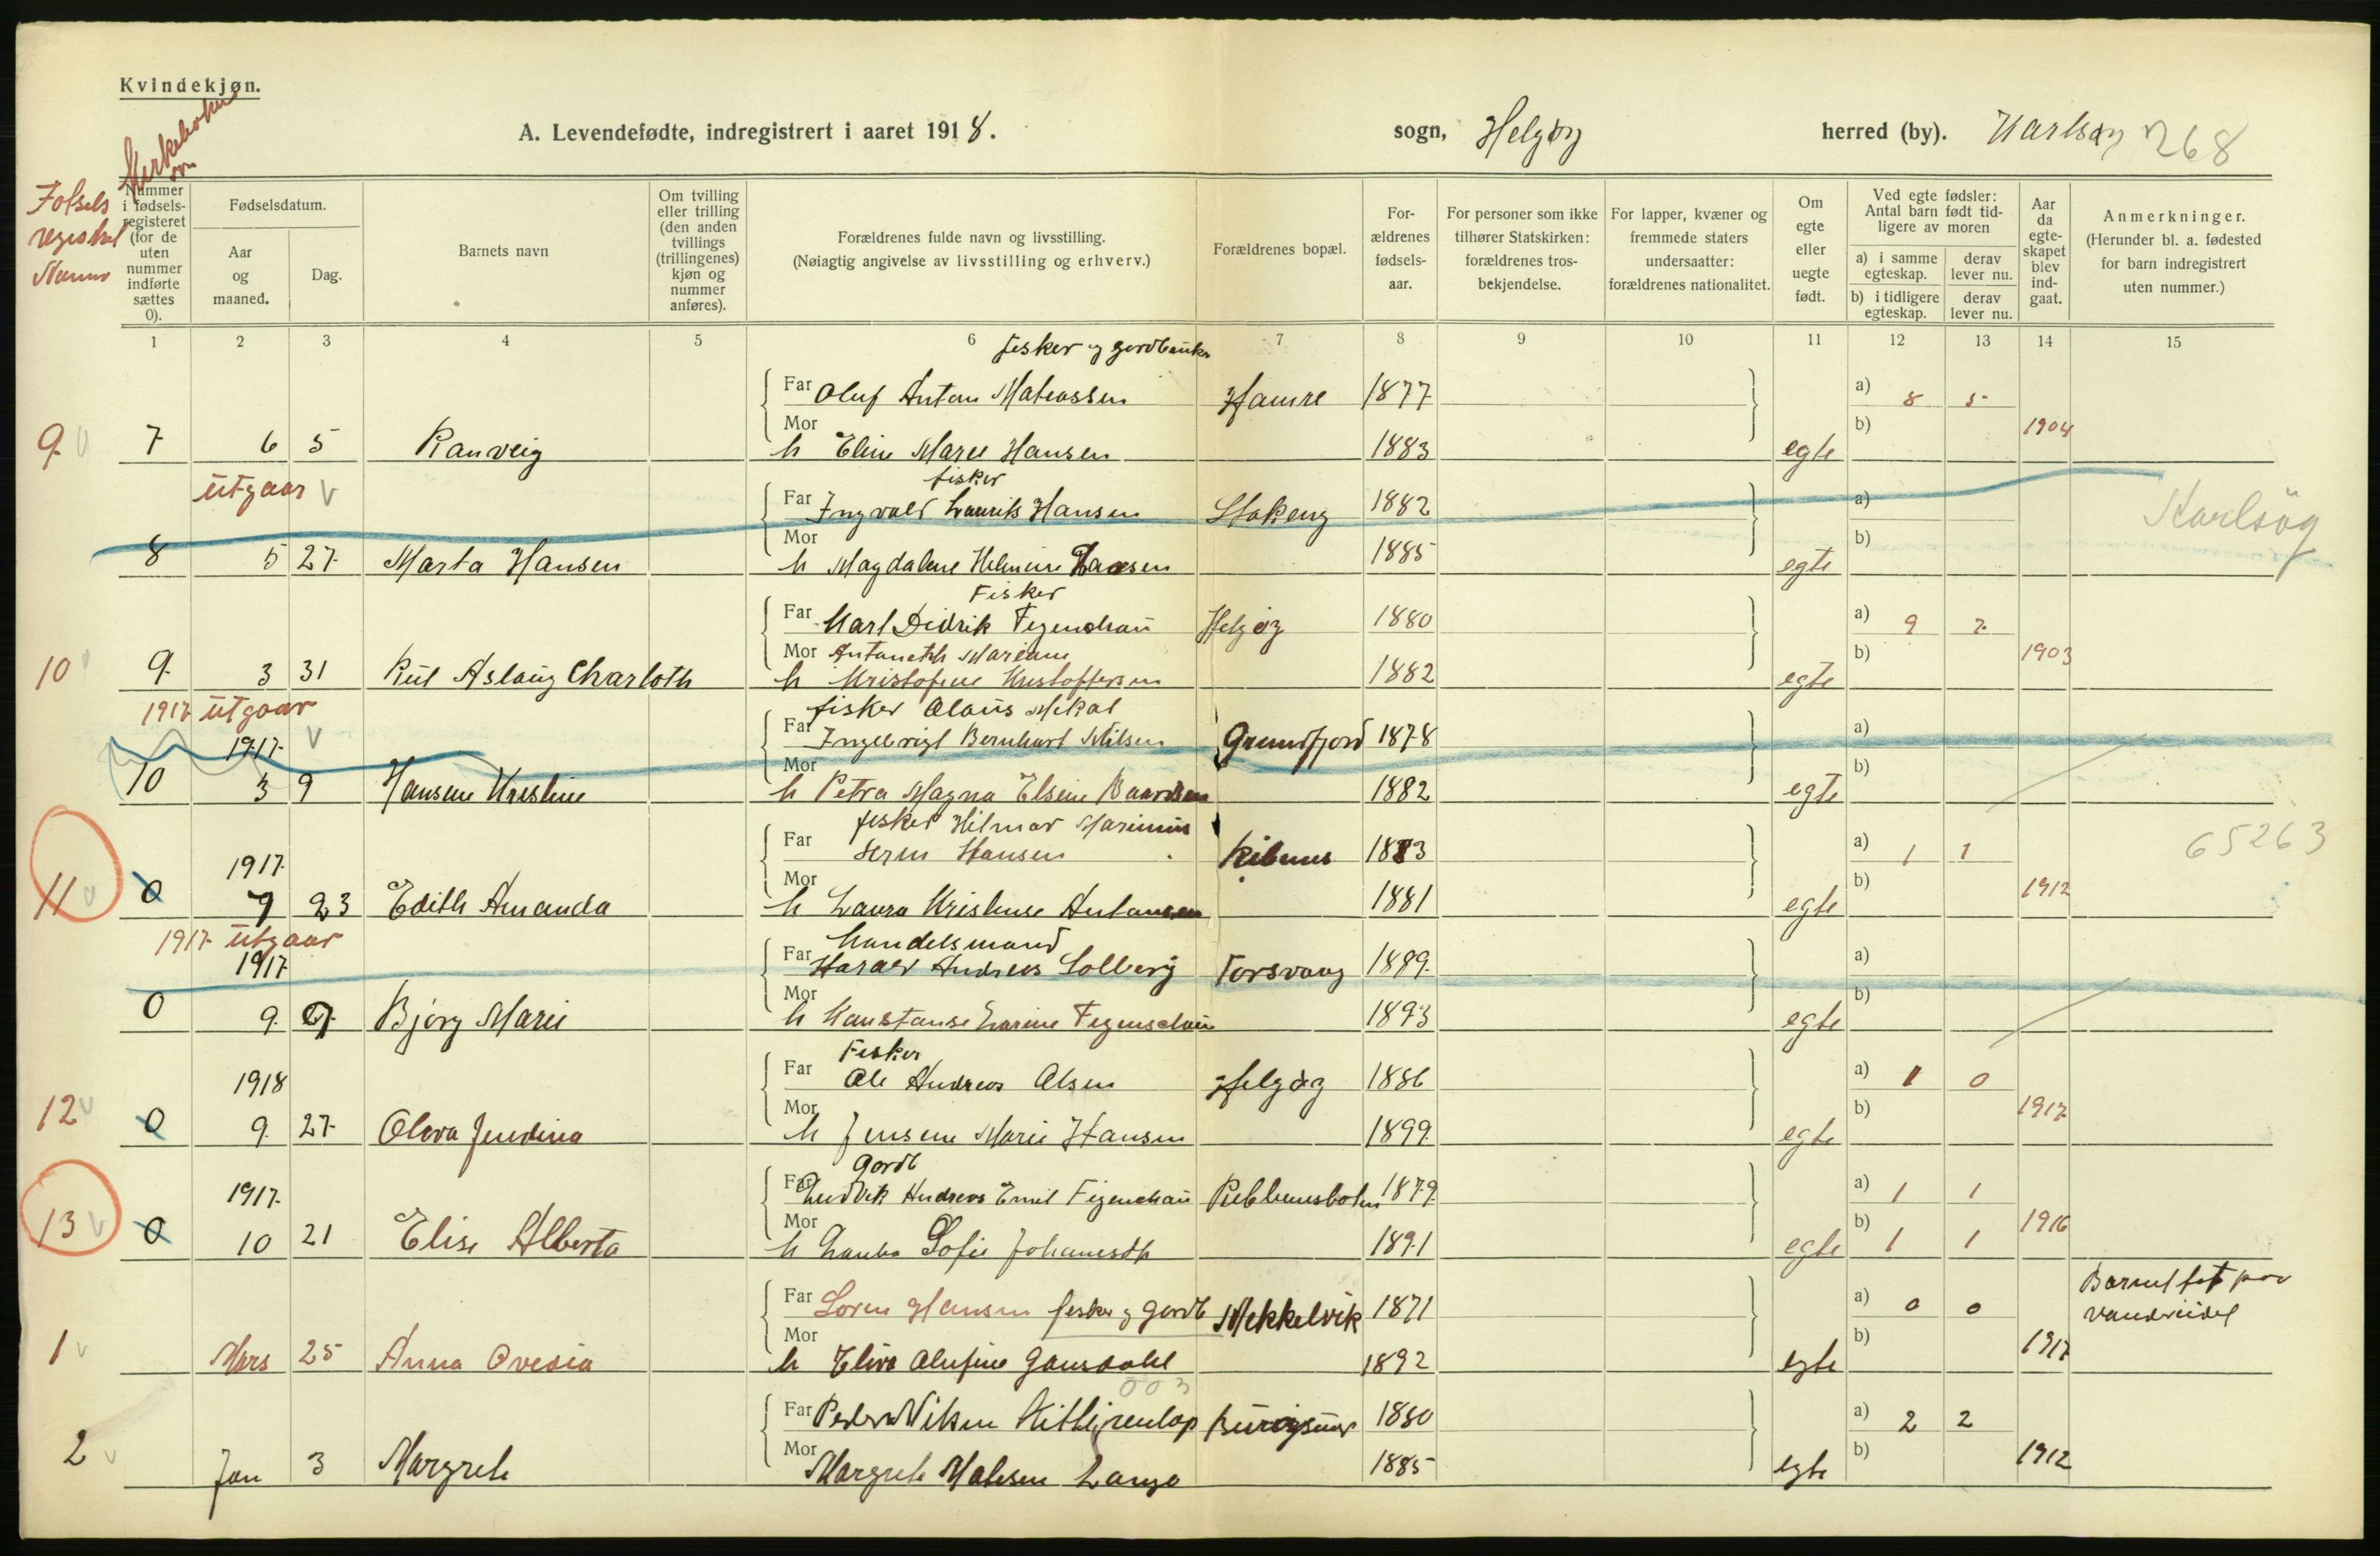 Kvindekjøn.
A. Levendefødte, indregistrert i aaret 1918. sogn, Helgøy herred (by). Karlsøy 268
Nummer i fødsels-registeret (for de uten nummer indførte sættes 0).
Fødselsdatum.
Aar og maaned.
Dag.
Barnets navn
Om tvilling eller trilling (den anden tvillings (trillingenes) kjøn og nummer anføres).
Forældrenes fulde navn og livsstilling.
(Nøiagtig angivelse av livsstilling og erhverv.)
Forældrenes bopæl.
For-ældrenes fødsels-aar.
For personer som ikke tilhører Statskirken: forældrenes tros-bekjendelse.
For lapper, kvæner og fremmede staters undersaatter: forældrenes nationalitet.
Om egte eller uegte født.
Ved egte fødsler: Antal barn født tid-ligere av moren
a) i samme egteskap.
derav lever nu.
b) i tidligere egteskap.
derav lever nu.
Aar da egte-skapet blev ind-gaat.
Anmerkninger.
(Herunder bl. a. fødested for barn indregistrert uten nummer.)
1 2 3 4 5 6 7 8 9 10 11 12 13 14 15
fisker og
Far Oluf Anton Mateassen Hamre 1877 a) 8 5
Mor b) 1904
9 7 6 5 Ranveig h Eline Marie Hansen 1883 egte
utgaar fisker
Far Ingvald Laurits Hansen Stakeng 1882 a) Karlsöy
Mor b)
8 5 27 Marta Hansen h Magdalene Helmine Hansen 1885 egte
Fisker
Far Karl Didrik Figenchau Helgøy 1880 a) 9 7
Mor Mariane b) 1903
10 9 3 31 Rut Aslaug Charloth h Kristofine Kristoffersen 1882 egte
1917 utgaar fisker Olaus Mikal
Far Ingebrigt Bernhart Nilsen Grundfjord 1878 a)
1917 Mor b)
10 3 9 Hansine Kristine h Petra Magna Elsine Baardsen 1882 egte
fisker Hilmar Marinius
Far Hansen 1883 a) 1 1 65263
1917 Mor b) 1912
11 0 9 23 Edith Amanda h Laura Kristense Antonsen 1881 egte
1917 utgaar Handelsmand
1917 Far Harald Andreas Solberg Torsvaag 1889 a)
Mor b)
0 9 9 Bjørg Marie h Konstanse Larine Figenschau 1893 egte
Fisker
1918 Far Ole Andreas Olsen Helgøy 1886 a) 1 0
Mor b) 1917
12 0 9 27 Olova Jendina h Jensine Marie Hansen 1899 egte
Gardb
1917 Far Ludvik Andreas Emil Figenchau 1879 a) 1 1
Mor b) 1916
13 0 10 21 Elise Alberta h Sofie 1891 egte 1 1
Far Søren Hansen fisker og Gardb Mikkelvik 1871 a) 0 0
Mor b) 1917
1 Mars 25 Anna Ovedia h Elina Olufine 1892 egte
003
Far Peder Nilsen 1880 a) 2 2
Mor b) 1912
2 Jan 3 Margrete Margrete 1885 egte